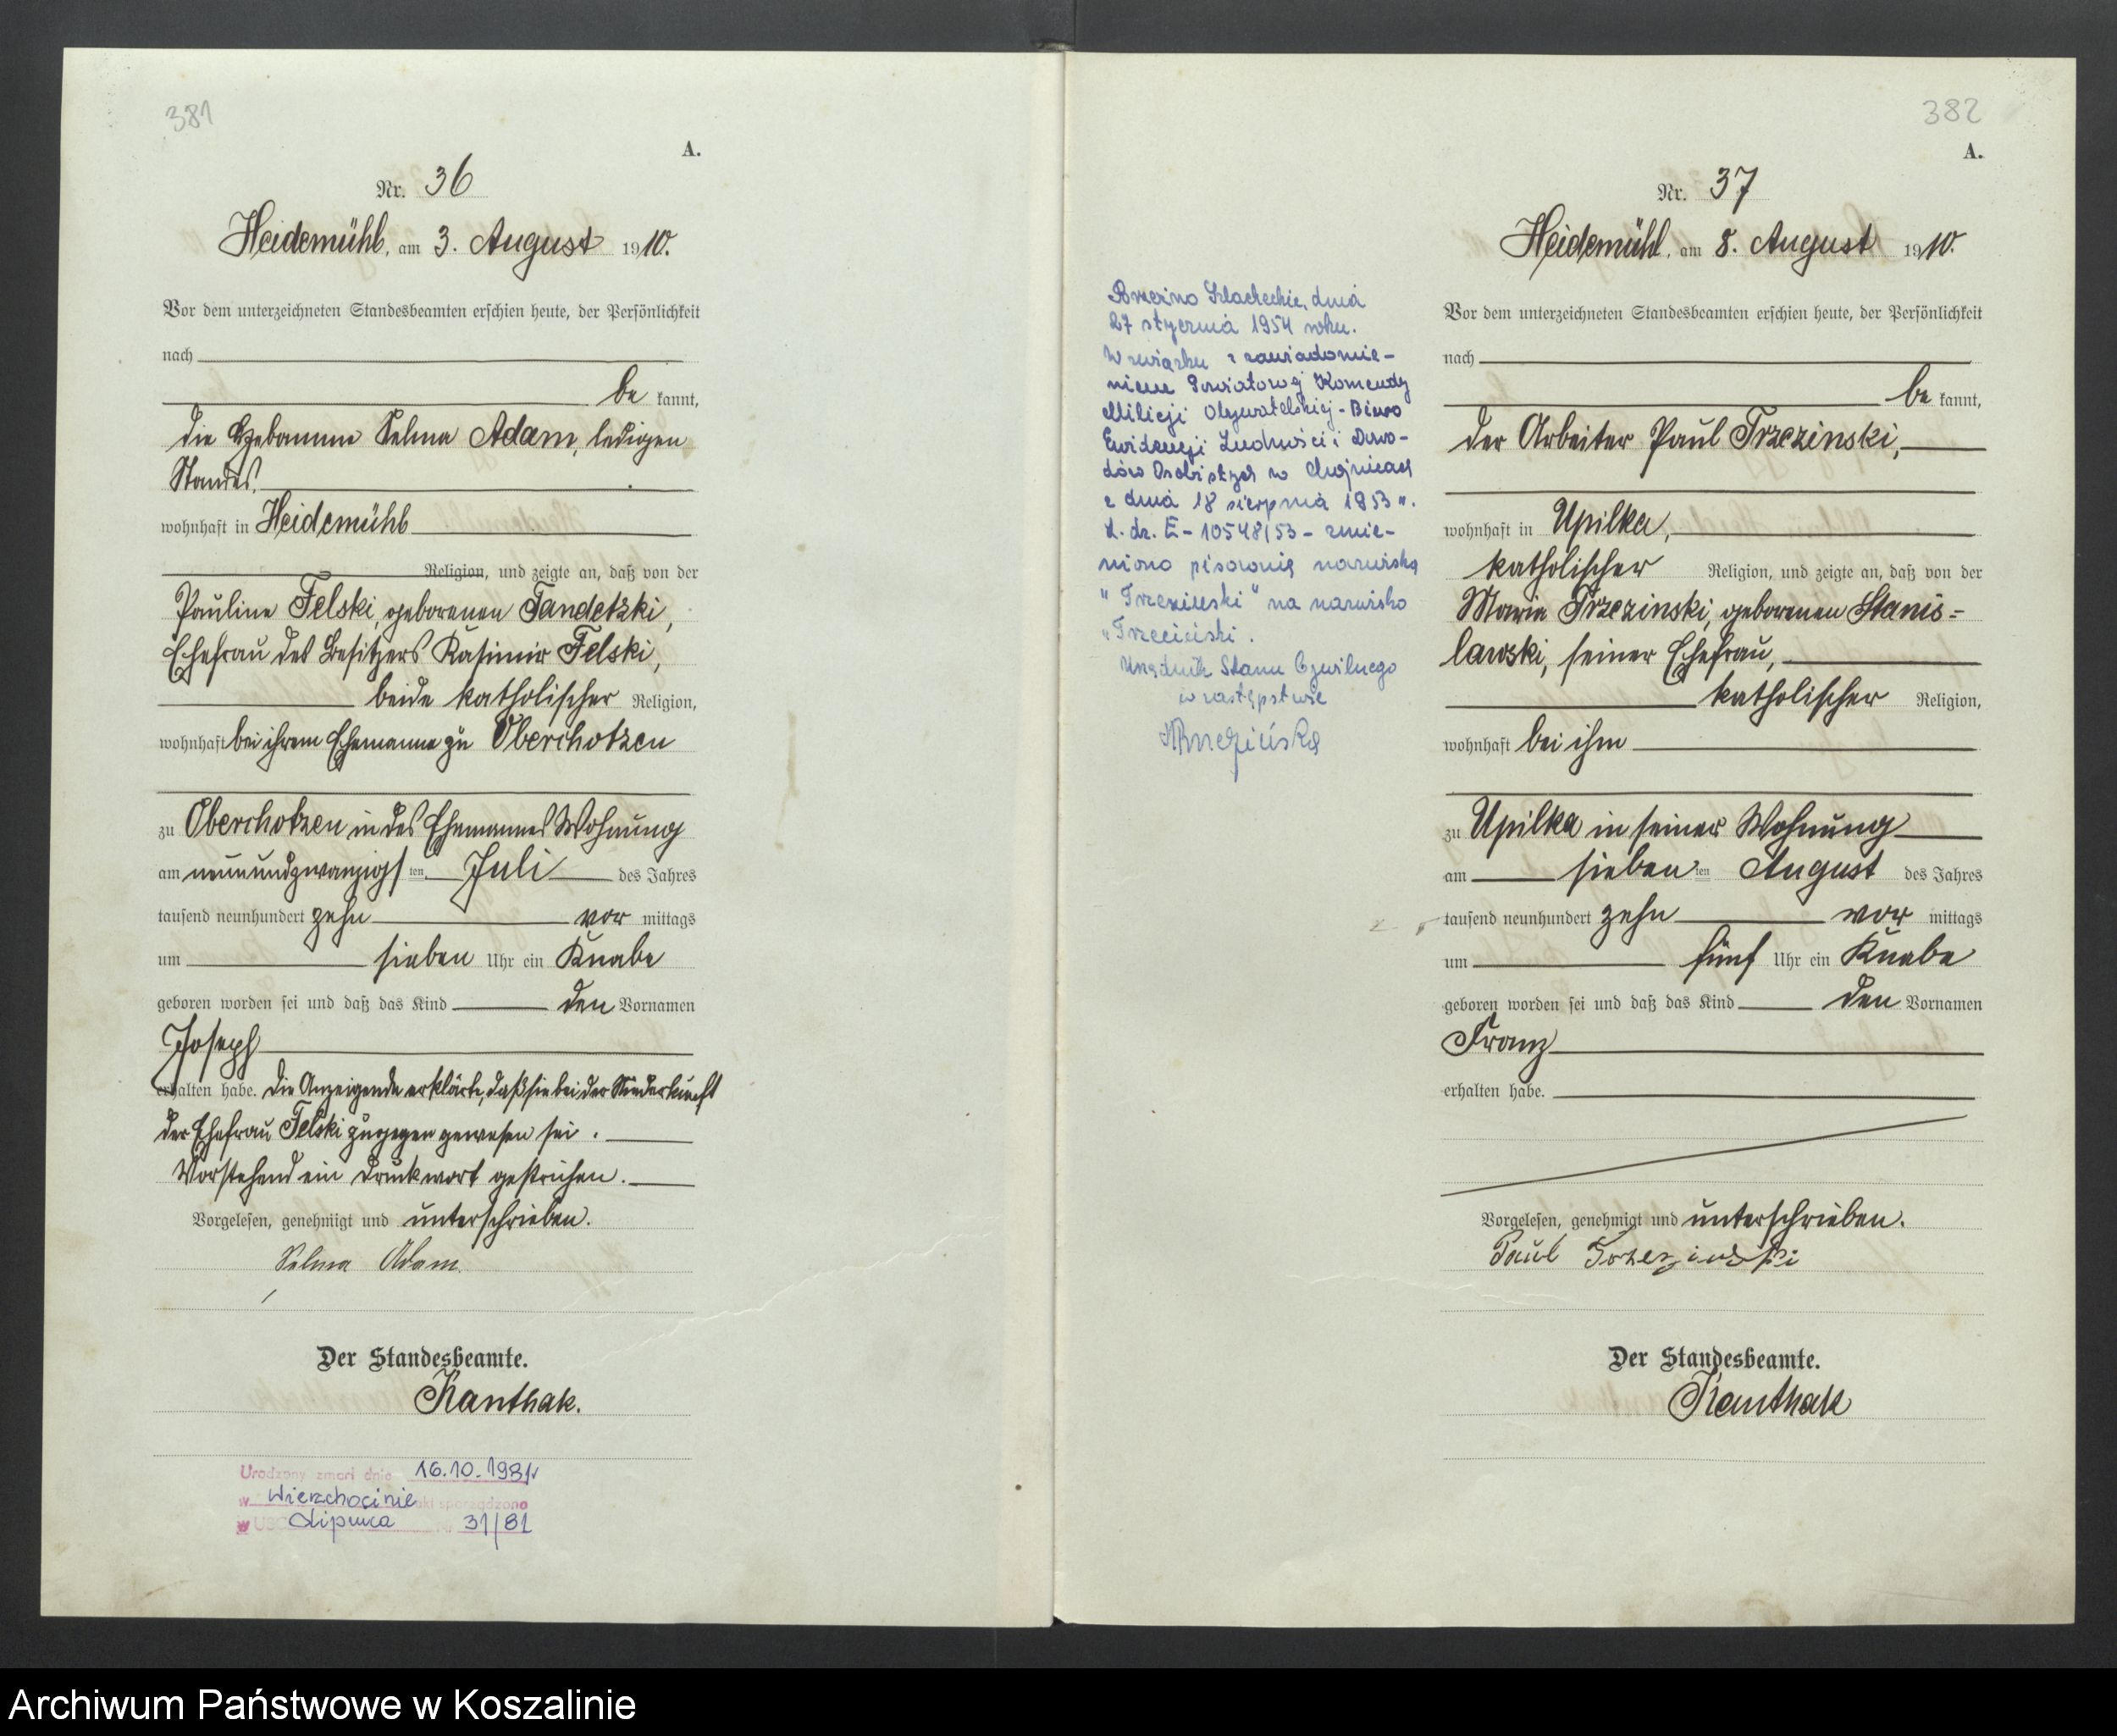 381
A.
Nr. 36
Heidemühl, am 3. August 1910.
Vor dem unterzeichneten Standesbeamten erschien heute, der Persönlichkeit
nach
be kannt,
die Hebamme Selma Adam, ledigen
Standes,
wohnhaft in Heidemühl
Religion, und zeigte an, daß von der
Pauline Felski, geborenen Tandetzki,
Ehefrau des Besitzers Kasimir Felski,
beide katholischer Religion,
wohnhaft bei ihrem Ehemanne zu Oberchotzen
zu Oberchotzen in des Ehemannes Wohnung
am neunundzwanzigsten Juli des Jahres
tausend neunhundert zehn vor mittags
um sieben Uhr ein Knabe
geboren worden sei und daß das Kind den Vornamen
Joseph
erhalten habe. Die Anzeigende erklärte, daß sie bei der Niederkunft
der Ehefrau Felski zugegen gewesen sei.
Vorstehend ein Druckwort gestrichen.
Vorgelesen, genehmigt und unterschrieben.
Selma Adam.
Der Standesbeamte.
Kanthak.
Urodzony zmarł dnia 16.10.1981
w Wierzchocinie akt sporządzono
w USC Lipnica 31/81
382
A.
Nr. 37
Heidemühl, am 8. August 1910.
Vor dem unterzeichneten Standesbeamten erschien heute, der Persönlichkeit
nach
be kannt,
der Arbeiter Paul Trzezinski,
wohnhaft in Upilka,
katholischer Religion, und zeigte an, daß von der
Maria Trzezinski, geborenen Stanis-
lawski, seiner Ehefrau,
katholischer Religion,
wohnhaft bei ihm
zu Upilka in seiner Wohnung
am siebenten August des Jahres
tausend neunhundert zehn vor mittags
um fünf Uhr ein Knabe
geboren worden sei und daß das Kind den Vornamen
Franz
erhalten habe.
Vorgelesen, genehmigt und unterschrieben.
Paul Trzezinski
Der Standesbeamte.
Kanthak
Borzyszkowy Szlacheckie, dnia
27 stycznia 1954 roku.
W związku z zawiadomie-
niem Powiatowej Komendy
Milicji Obywatelskiej - Biuro
Ewidencji Ludności i Dowo-
dów Osobistych w Chojnicach
z dnia 18 sierpnia 1953 r.
L. dz. E - 10548/53 - zmie-
niono pisownię nazwiska
"Trzezinski" na nazwisko
"Trzeciński.
Urzędnik Stanu Cywilnego
w zastępstwie
Archiwum Państwowe w Koszalinie